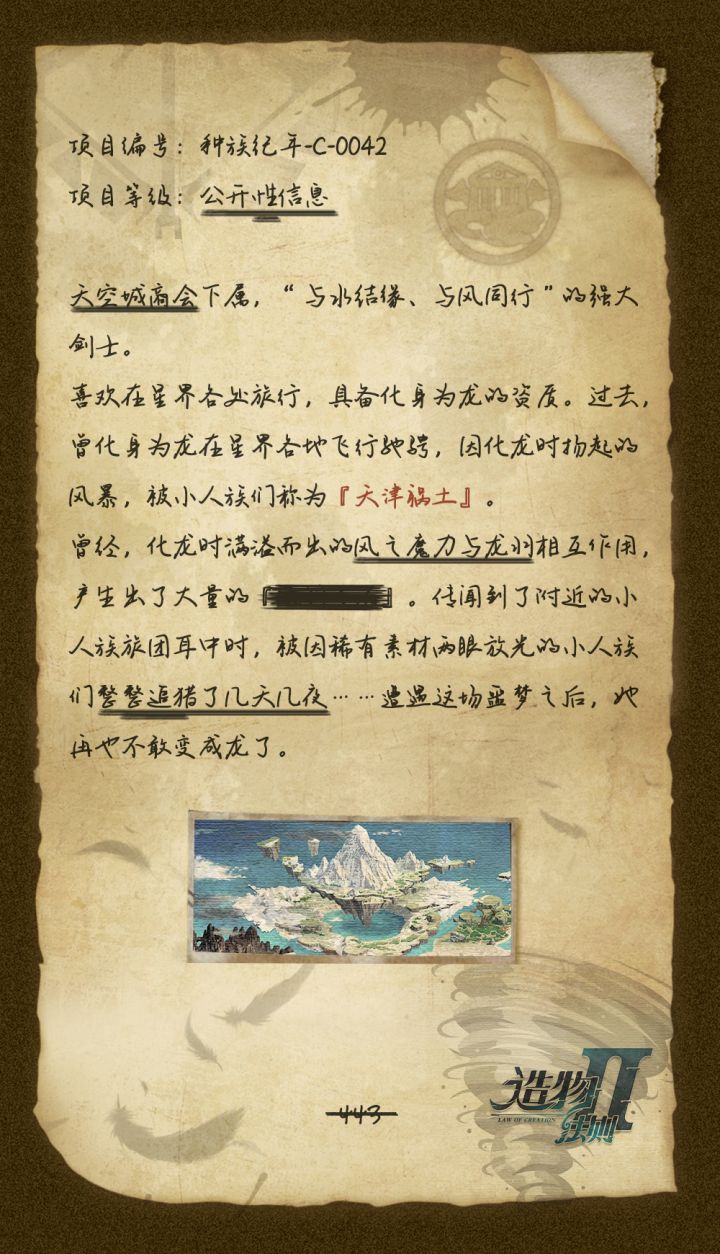 项目编号：种族纪年-C-0042
项目等级：公开性信息
天空城商会下属，“与水结缘、与风同行”的强大
剑士。
喜欢在星界各处旅行，具备化身为龙的资质。过去，
曾化身为龙在星界各地飞行驰骋，因化龙时扬起的
风暴，被小人族们称为『天津祸土』。
曾经，化龙时满溢而出的风之魔力与龙羽相互作用，
产生出了大量的 。传闻到了附近的小
人族旅团耳中时，被因稀有素材两眼放光的小人族
们整整追猎了几天几夜……遭遇这场噩梦之后，她
再也不敢变成龙了。
443
造物法则II
LAW OF CREATION